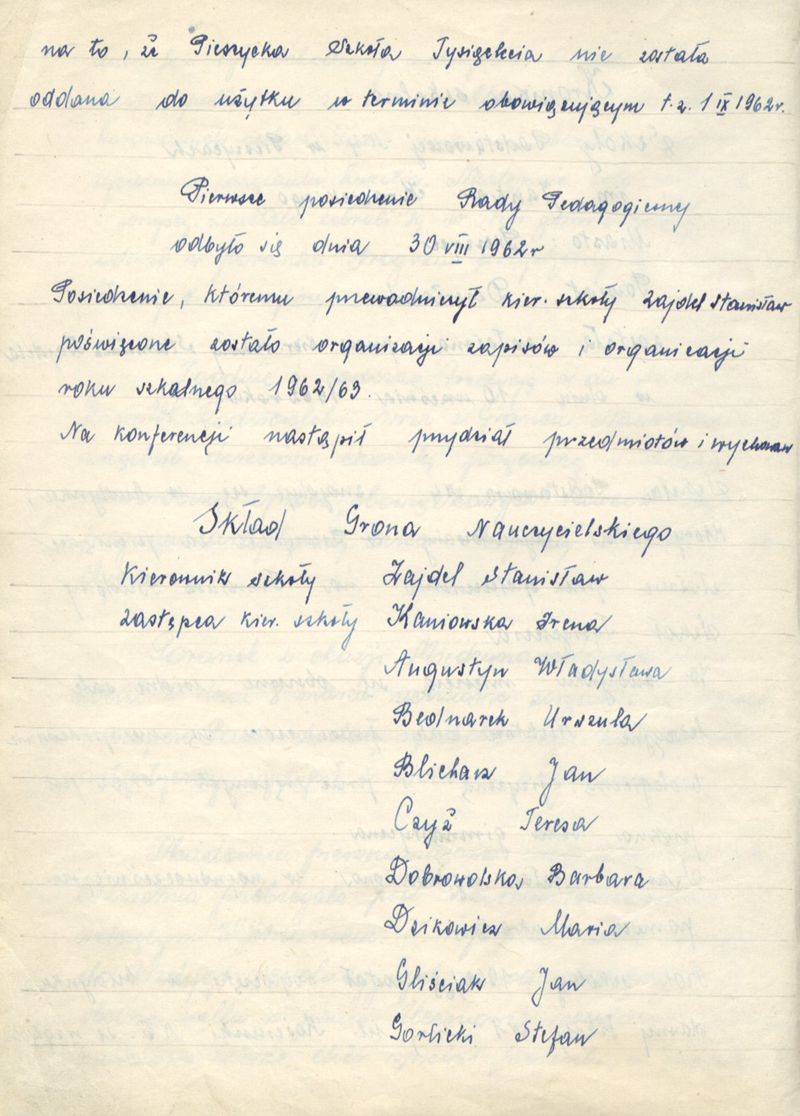 na to, że Pieszycka Szkoła Tysiąclecia nie zatała
oddana do użytku w terminie obowiązującym t.z. 1 IX 1962r.
Pierwsze posiedzenie Rady Pedagogicznej
odbyło się dnia 30 VIII 1962r
Posiedzenie, któremu przewodniczył kier. szkoły Zajdel Stanisław
poświęcone zostało organizacji zapisów i organizacji
roku szkolnego 1962/63.
Na konferencji nastąpił przydział przedmiotów i wychowaw
Skład Grona Nauczycielskiego
Kierownik szkoły Zajdel Stanisław
zastępca kier. szkoły Kaniowska Irena
Augustyn Władysława
Bednarek Urszula
Blicharz Jan
Czyż Teresa
Dobrowolska Barbara
Dzikowicz Maria
Gliściak Jan
Gorlicki Stefan